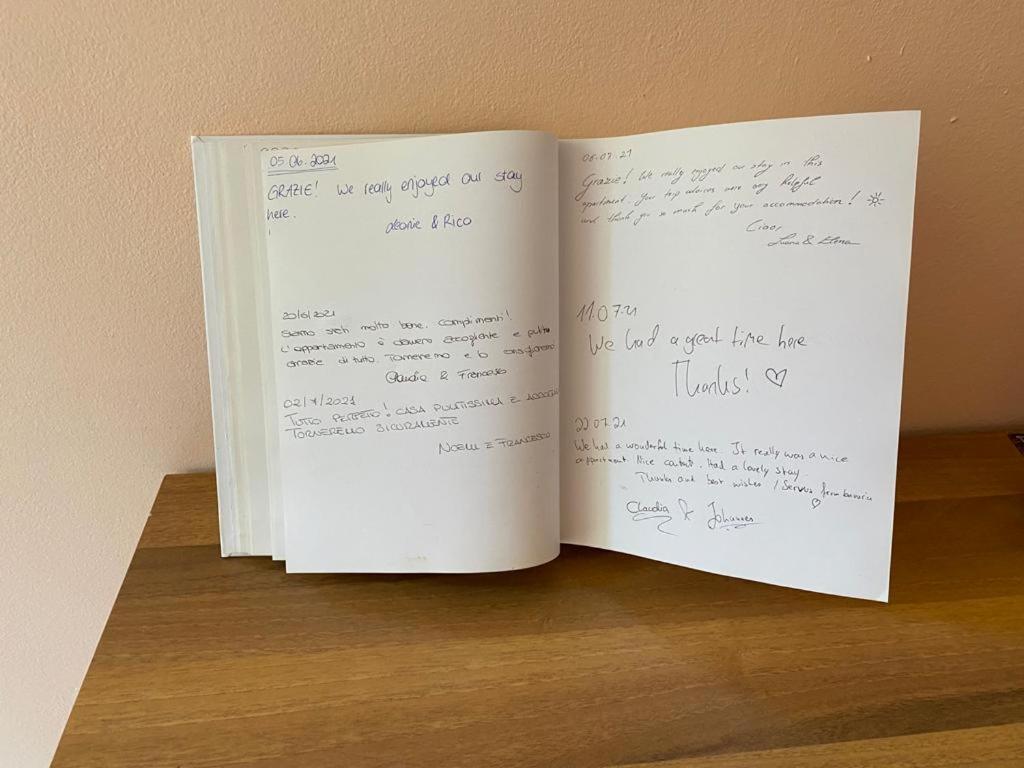 05.06.2021
GRAZIE! We really enjoyed our stay
here.
Leonie & Rico
20/6/2021
Siamo stati molto bene. Complimenti!
L'appartamento è davvero accogliente e pulito
Grazie di tutto. Torneremo e lo consiglieremo.
Claudia & Francesco
02/7/2021
TUTTO PERFETTO! CASA PULITISSIMA E
TORNEREMO SICURAMENTE
NOEMI E FRANCESCO
06.07.21
Grazie! We really enjoyed our stay in this
apartment. Your trip advices were very helpful
and thank you so much for your accommodation!
Ciao,
& Elena
11.07.21
We had a great time here
Thanks! ♡
22.07.21
We had a wonderful time here. It really was a nice
appartment. Nice contact. Had a lovely stay.
Thanks and best wishes / Servus from bavaria
♡
Claudia & Johannes